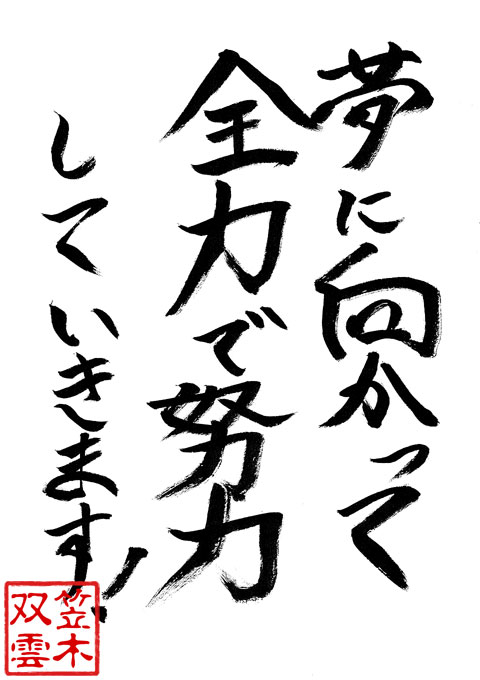 夢に向かって
全力で努力
していきます!
笠木
双雲